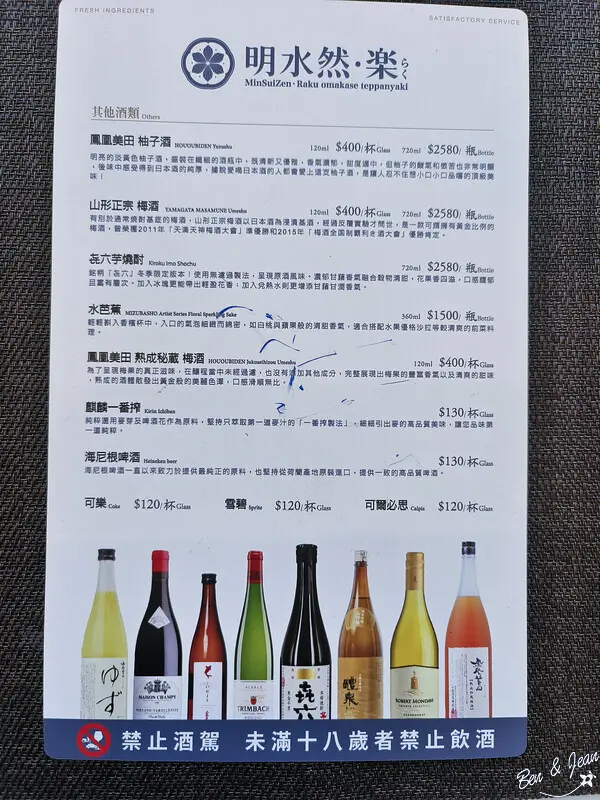 FRESH INGREDIENTS
SATISFACTORY SERVICE
明水然·楽らく
MinSuiZen·Raku omakase teppanyaki
其他酒類 Others
鳳凰美田 柚子酒 HOUOUBIDEN Yuzushu 120ml $400/杯Glass 720ml $2580/ 瓶Bottle
明亮的淡黃色柚子酒，盛裝在纖細的酒瓶中，既清新又優雅，香氣濃郁，甜度適中，但柚子的酸氣和微苦也非常明顯
，後味中感受得到日本酒的純厚，據說愛喝日本酒的人都會愛上這支柚子酒，是讓人忍不住想小口小口品嚐的頂級美
味！
山形正宗 梅酒 YAMAGATA MASAMUNE Umeshu 120ml $400/杯Glass 720ml $2580/ 瓶Bottle
有別於通常燒酎基底的梅酒，山形正宗梅酒以日本酒為浸漬基酒，經過反覆實驗才問世，是一款可謂擁有黃金比例的
梅酒，曾榮獲2011年「天滿天神梅酒大會」準優勝和2015年「梅酒全国制覇利き酒大會」優勝肯定。
㐂六芋燒酎 Kiroku Imo Shochu 720ml $2580/ 瓶Bottle
銘柄「㐂六」冬季限定版本！使用無濾過製法，呈現原酒風味。濃郁甘藷香氣融合穀物清甜，花果香四溢，口感醇郁
且富有層次。加入冰塊更能帶出輕盈花香，加入兌熱水則更增添甘藷甘潤香氣。
水芭蕉 MIZUBASHO Artist Series Floral Sparkling Sake 360ml $1500/ 瓶Bottle
輕輕斟入香檳杯中，入口的氣泡細緻而綿密，如白桃與蘋果般的清甜香氣，適合搭配水果優格沙拉等較清爽的前菜料
理。
鳳凰美田 熟成秘蔵 梅酒 HOUOUBIDEN Jukuseihizou Umeshu 120ml $400/杯Glass
為了呈現梅果的真正滋味，在釀程當中未經過濾，也沒有添加其他成分，完整展現出梅果的豐富香氣以及清爽的甜味
，熟成的酒體散發出黃金般的美麗色澤，口感滑順無比。
麒麟一番搾 Kirin Ichiban $130/杯Glass
純粹選用麥芽及啤酒花作為原料，堅持只萃取第一道麥汁的「一番搾製法」，細細引出麥的高品質美味，讓您品味第
一道純粹。
海尼根啤酒 Heineken beer $130/杯Glass
海尼根啤酒一直以來致力於提供最純正的原料，也堅持從荷蘭產地原裝進口，提供一致的高品質啤酒。
可樂 Coke $120/杯Glass 雪碧 Sprite $120/杯Glass 可爾必思 Calpis $120/杯Glass
ゆず
MAISON CHAMPY
ALSACE
TRIMBACH
㐂六
醴泉
ROBERT MONDAVI
禁止酒駕 未滿十八歲者禁止飲酒
Ben & Jean